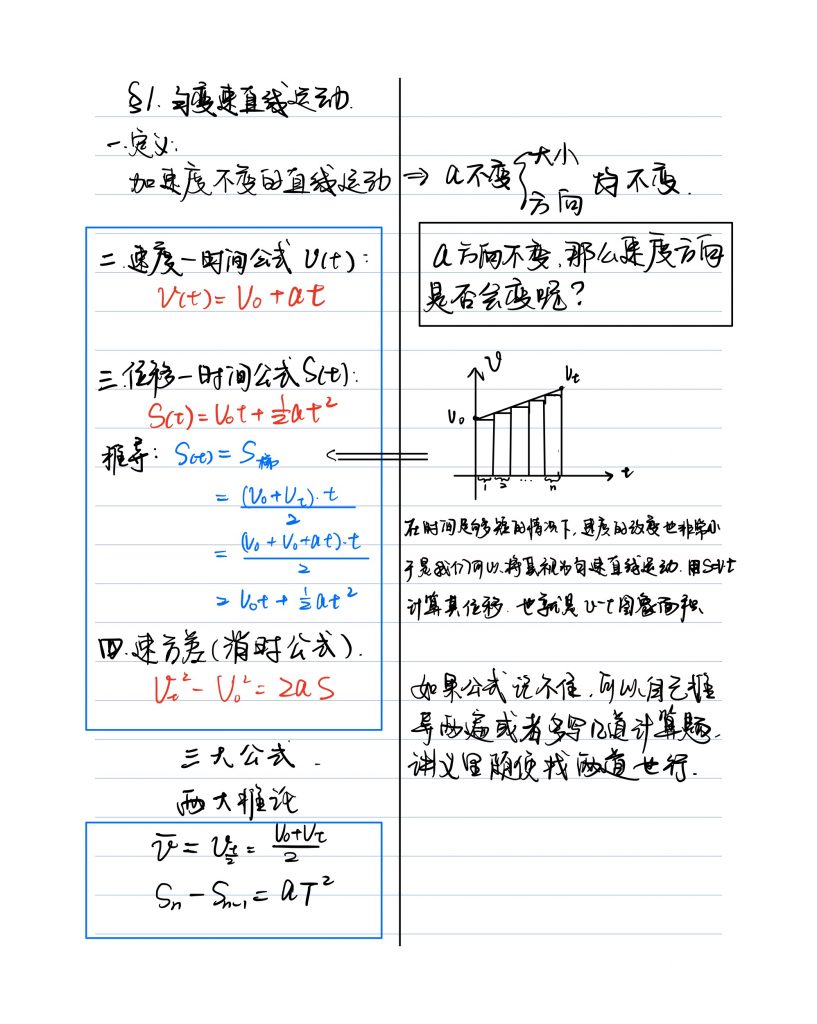 §1.匀变速直线运动.
一.定义:
加速度不变的直线运动 ⇒ a不变{大小 方向 均不变.
二.速度一时间公式 V(t):
V(t)=V₀+at
三.位移一时间公式S(t):
S(t)=V₀t+½at²
推导: S(t)=S梯
=(V₀+Vt)·t/2
=(V₀+V₀+at)·t/2
=V₀t+½at²
四.速方差(消时公式).
Vt²-V₀²=2aS
三大公式.
两大推论
v̄=V_{t/2}=(V₀+Vt)/2
Sn-Sn-1=aT²
a方向不变,那么速度方向
是否会变呢?
V
Vt
V₀
t
1 2 … n
在时间足够短的情况下,速度的改变也非常小
于是我们可以将其视为匀速直线运动.用S=Vt
计算其位移.也就是v-t图象面积.
如果公式记不住,可以自己推
导两遍或者多写几道计算题.
讲义里随便找两道也行.